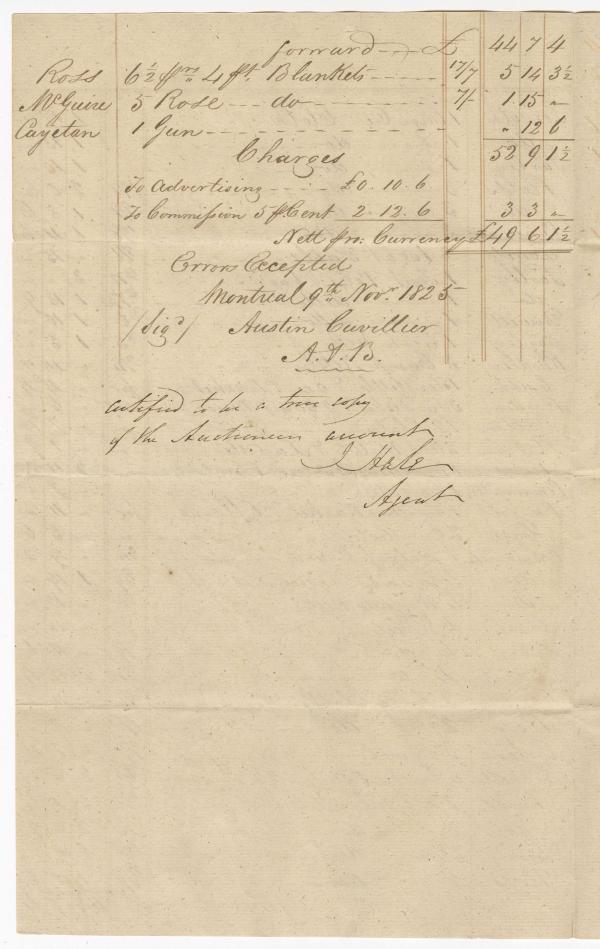 forward - - - £ 44 7 4
Ross 6½ prs 4 pt. Blankets - - - - - 17/7 5 14 3½
McGuire 5 Rose - - - do - - - - - - - 7/- 1 15 "
Cayetan 1 Gun - - - - - - - - - - " 12 6
Charges 52 9 1½
To Advertising - - - - £0. 10. 6
To Commission 5 p Cent 2. 12. 6 3 3 "
Nett pro: Currency £49 6 1½
Errors Excepted
Montreal 9th Novr. 1825
/Sigd/ Austin Cuvillier
A. & B.
certified to be a true copy
of the Auctioneers account
J Hale
Agent